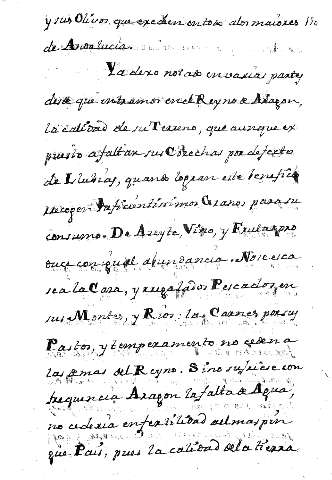 y sus Olivos que exceden en todo a los maiores
de Andalucia.
Ya dexo notado en varias partes
desde que entramos en el Reyno de Aragon,
la calidad de su Terreno, que aunque ex
puesto a faltar sus Cosechas por defecto
de Lluvias, quando logran este beneficio
recogen suficientissimos Granos para su
consumo. De Azeyte, Vino, y Frutas pro
duce con igual abundancia. No escasea
sea la Caza, y regalados Pescados, en
sus Montes, y Rios: las Carnes por sus
Pastos, y temperamento no ceden a
las demas del Reyno. Si no sufriese con
frequencia Aragon la falta de Agua,
no cederia en fertilidad al mas pin
que Pais, pues la calidad de la tierra